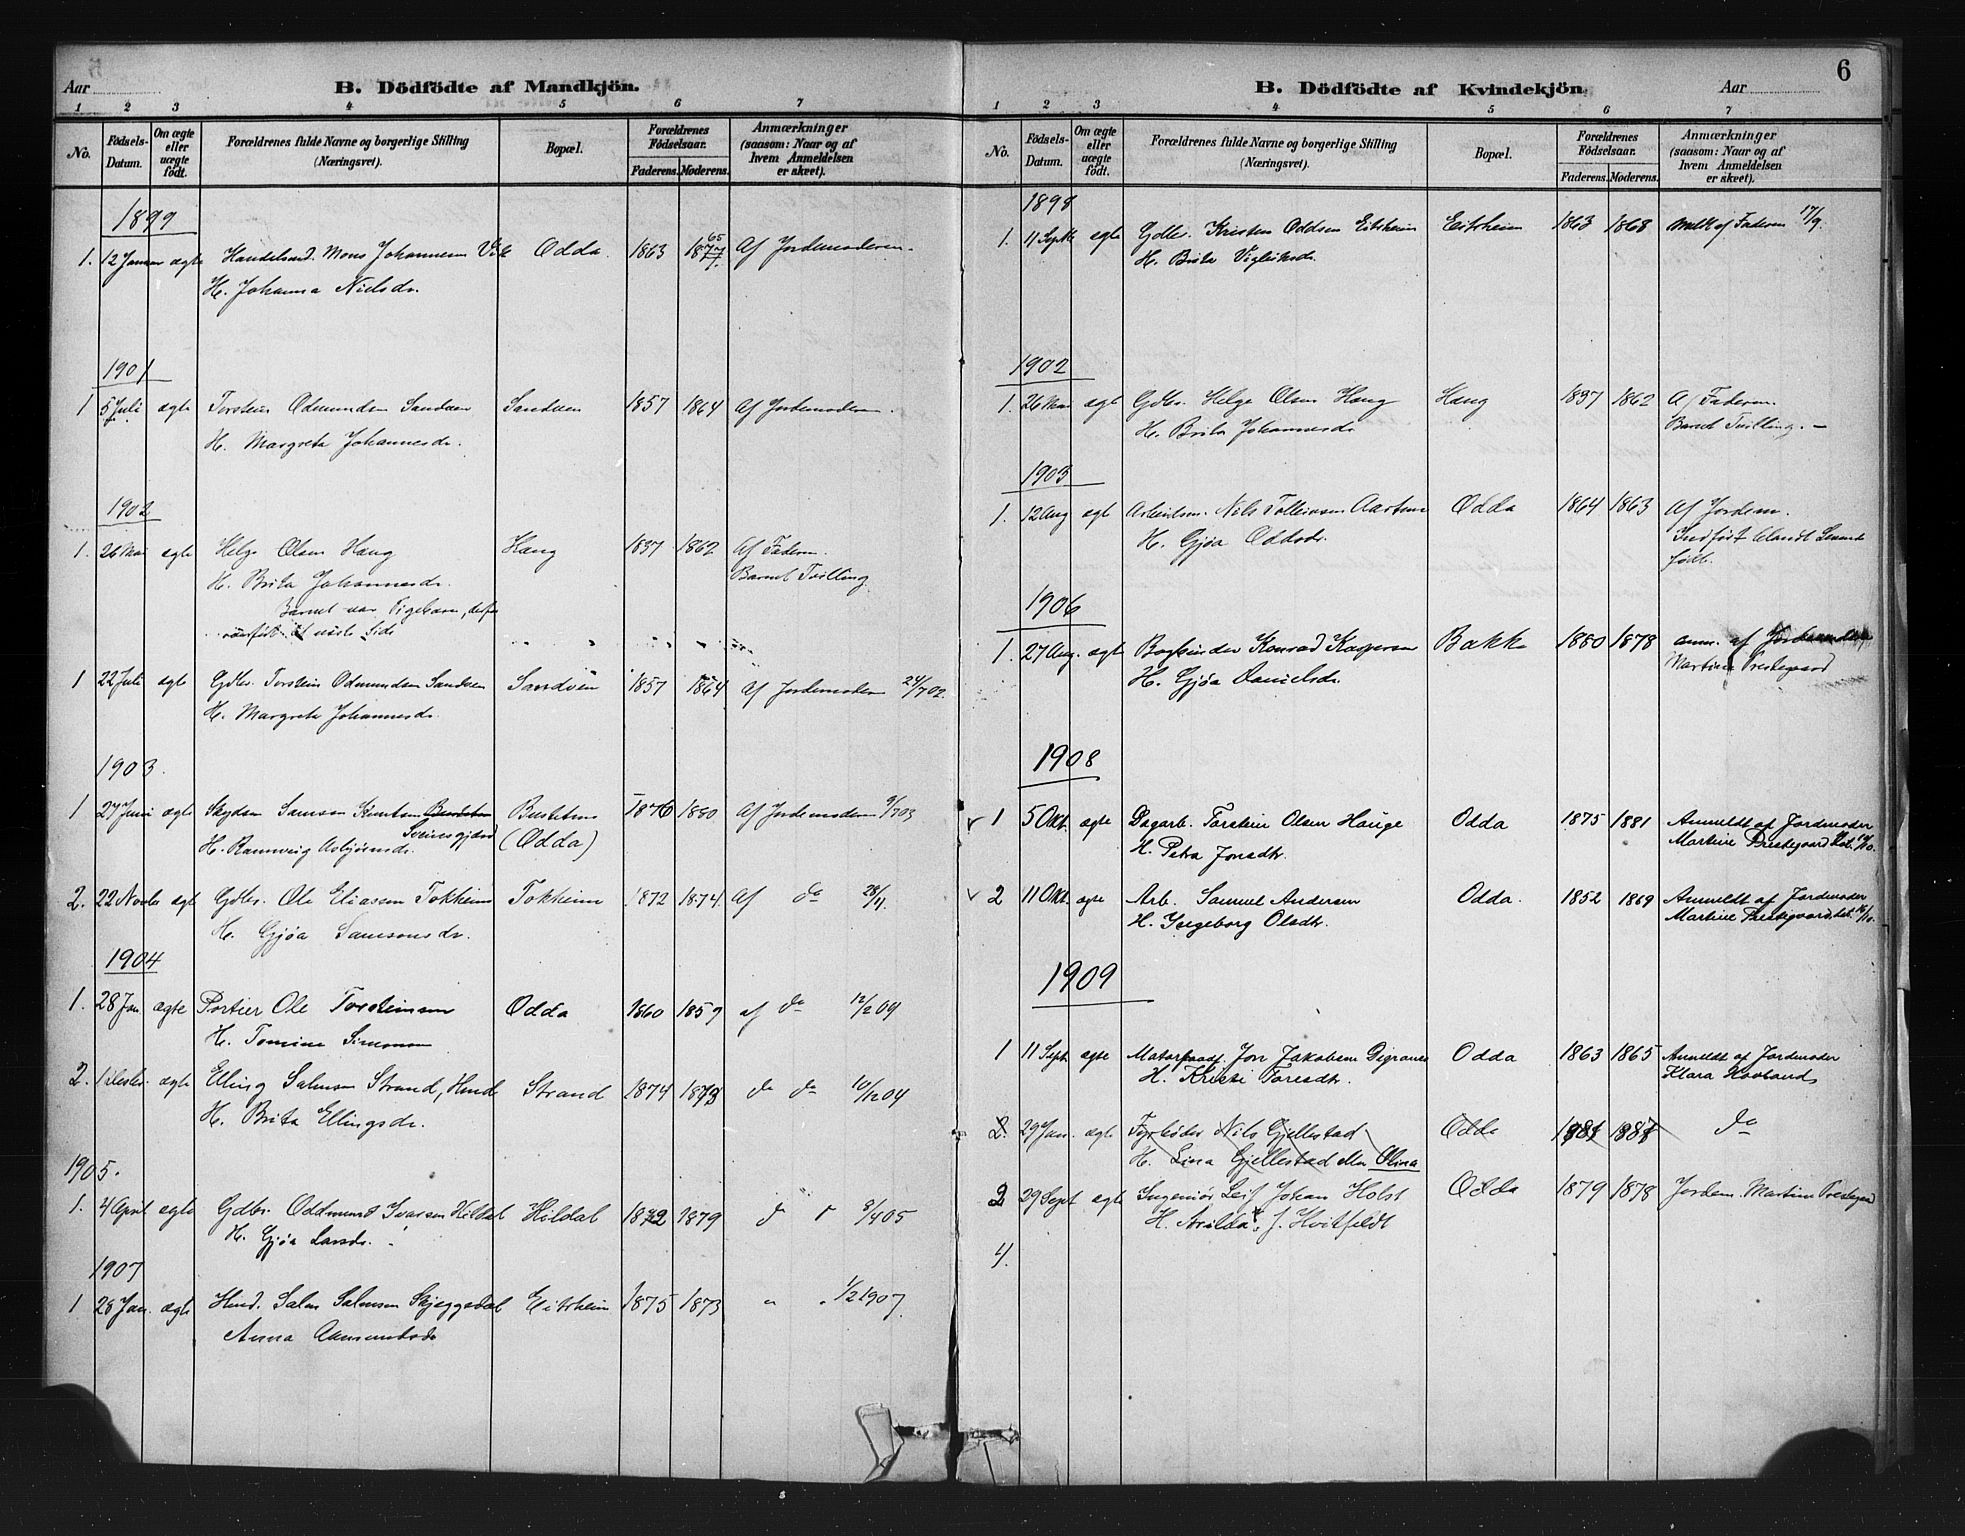 Aar
B. Dödfödte af Mandkjön.
1 2 3 4 5 6 7
No.
Födsels-Datum.
Om ægte eller uægte födt.
Forældrenes fulde Navne og borgerlige Stilling (Næringsvei).
Bopæl.
Forældrenes Födselsaar.
Faderens. Moderens.
Anmærkninger (saasom: Naar og af hvem Anmeldelsen er skeet).
1899
1. 12 Januar ægte Handelsmd. Mons Johannesen Vik Odda. 1863 1877 65 Af Jordemoderen.
H. Johanna Nielsdr.
1901
1 5 Juli ægte Torstein Odmundsen Sandven Sandven 1857 1864 Af Jordemoderen.
H. Margreta Johannesdr.
1902
1. 26 Mai ægte Helge Olsen Haug Haug 1837 1862 Af Faderen.
H. Brita Johannesdr. Barnet Tvilling.
Barnet var Pigebarn, derfor
overført til næste Side
1 22 Juli ægte Gdbr. Torstein Odmundsen Sandven Sandven 1857 1864 Af Jordemoderen 24/7 02.
H. Margreta Johannesdr.
1903.
1 27 Juni ægte Skydsm. Samson Knutsen Bustetun 1876 1880 Af Jordemoderen 9/7 03
H. Rannveig Asbjörnsdr. (Odda)
2. 22 Novbr ægte Gdbr. Ole Eliassen Tokheim Tokheim 1872 1874 Af do 28/11.
H. Gjøa Samsonsdr.
1904
1. 28 Jan. ægte Portier Ole Torsteinsen Odda 1860 1859 af do 12/2 04
H. Tomine Simonsen
2. ægte Elling Salmson Strand, Hmd Strand 1874 1873 do do 10/12 04
H. Brita Ellingsdr.
1905.
1. 4 April ægte Gdbr. Oddmund Ivarsen Hildal Hildal 1872 1879 8/4 05
H. Gjøa Larsdr.
1907
1 28 Jan. ægte Hmd. Salm. Salmsen Skjeggedal Eitrheim 1875 1873 " " 1/2 1907.
Anna
6
B. Dödfödte af Kvindekjön.
Aar
1 2 3 4 5 6 7
No.
Födsels-Datum.
Om ægte eller uægte födt.
Forældrenes fulde Navne og borgerlige Stilling (Næringsvei).
Bopæl.
Forældrenes Födselsaar.
Faderens. Moderens.
Anmærkninger (saasom: Naar og af hvem Anmeldelsen er skeet).
1898
1. 11 Septb ægte Gdbr. Kristen Oddsen Eitrheim Eitrheim 1863 1868 Anm. af Faderen 17/9.
H. Brita Vigleiksdr.
1902
1. 26 Mai ægte Gdbr. Helge Olsen Haug Haug 1837 1862 Af Faderen.
H. Brita Johannesdr. Barnet Tvilling. —
1903
1. 12 Aug ægte Arbeidsm. Nils Tolleivsen Odda 1864 1863 Af Jordem.
H. Gjøa Oddsdr. Indført blandt Levende
fødte.
1906
1. 27 Aug. ægte Bogbinder Konrad Kaspersen Bakke 1880 1878 anm. af Jordemoder
H. Gjøa Danielsdr. Martine Prestegaard
1908
1 5 Okt. ægte Dagarb. Torstein Olsen Hauge Odda 1875 1881 Anmeldt af Jordmoder
H. Petra Jonsdtr. Martine Prestegaard
2 11 Okt. ægte Arb. Samuel Andersen Odda. 1852 1869 Anmeldt af Jordmoder
H. Ingeborg Olsdtr. Martine Prestegaard
1909
1 11 Sept. ægte Jon Jakobsen Digranes Odda 1863 1865 Anmeldt af Jordmoder
H. Kristi Toresdtr. Klara Hovland
2. 29 Jan. ægte Fyrbøder Nils Gjellestad Odda do
H. Lina Gjellestad eller Olina
2 29 Sept ægte Ingeniör Leif Johan Holst Odda 1879 1878 Jordem. Martine Prestegaard
H. Arilda f. Hvitfeldt
4.